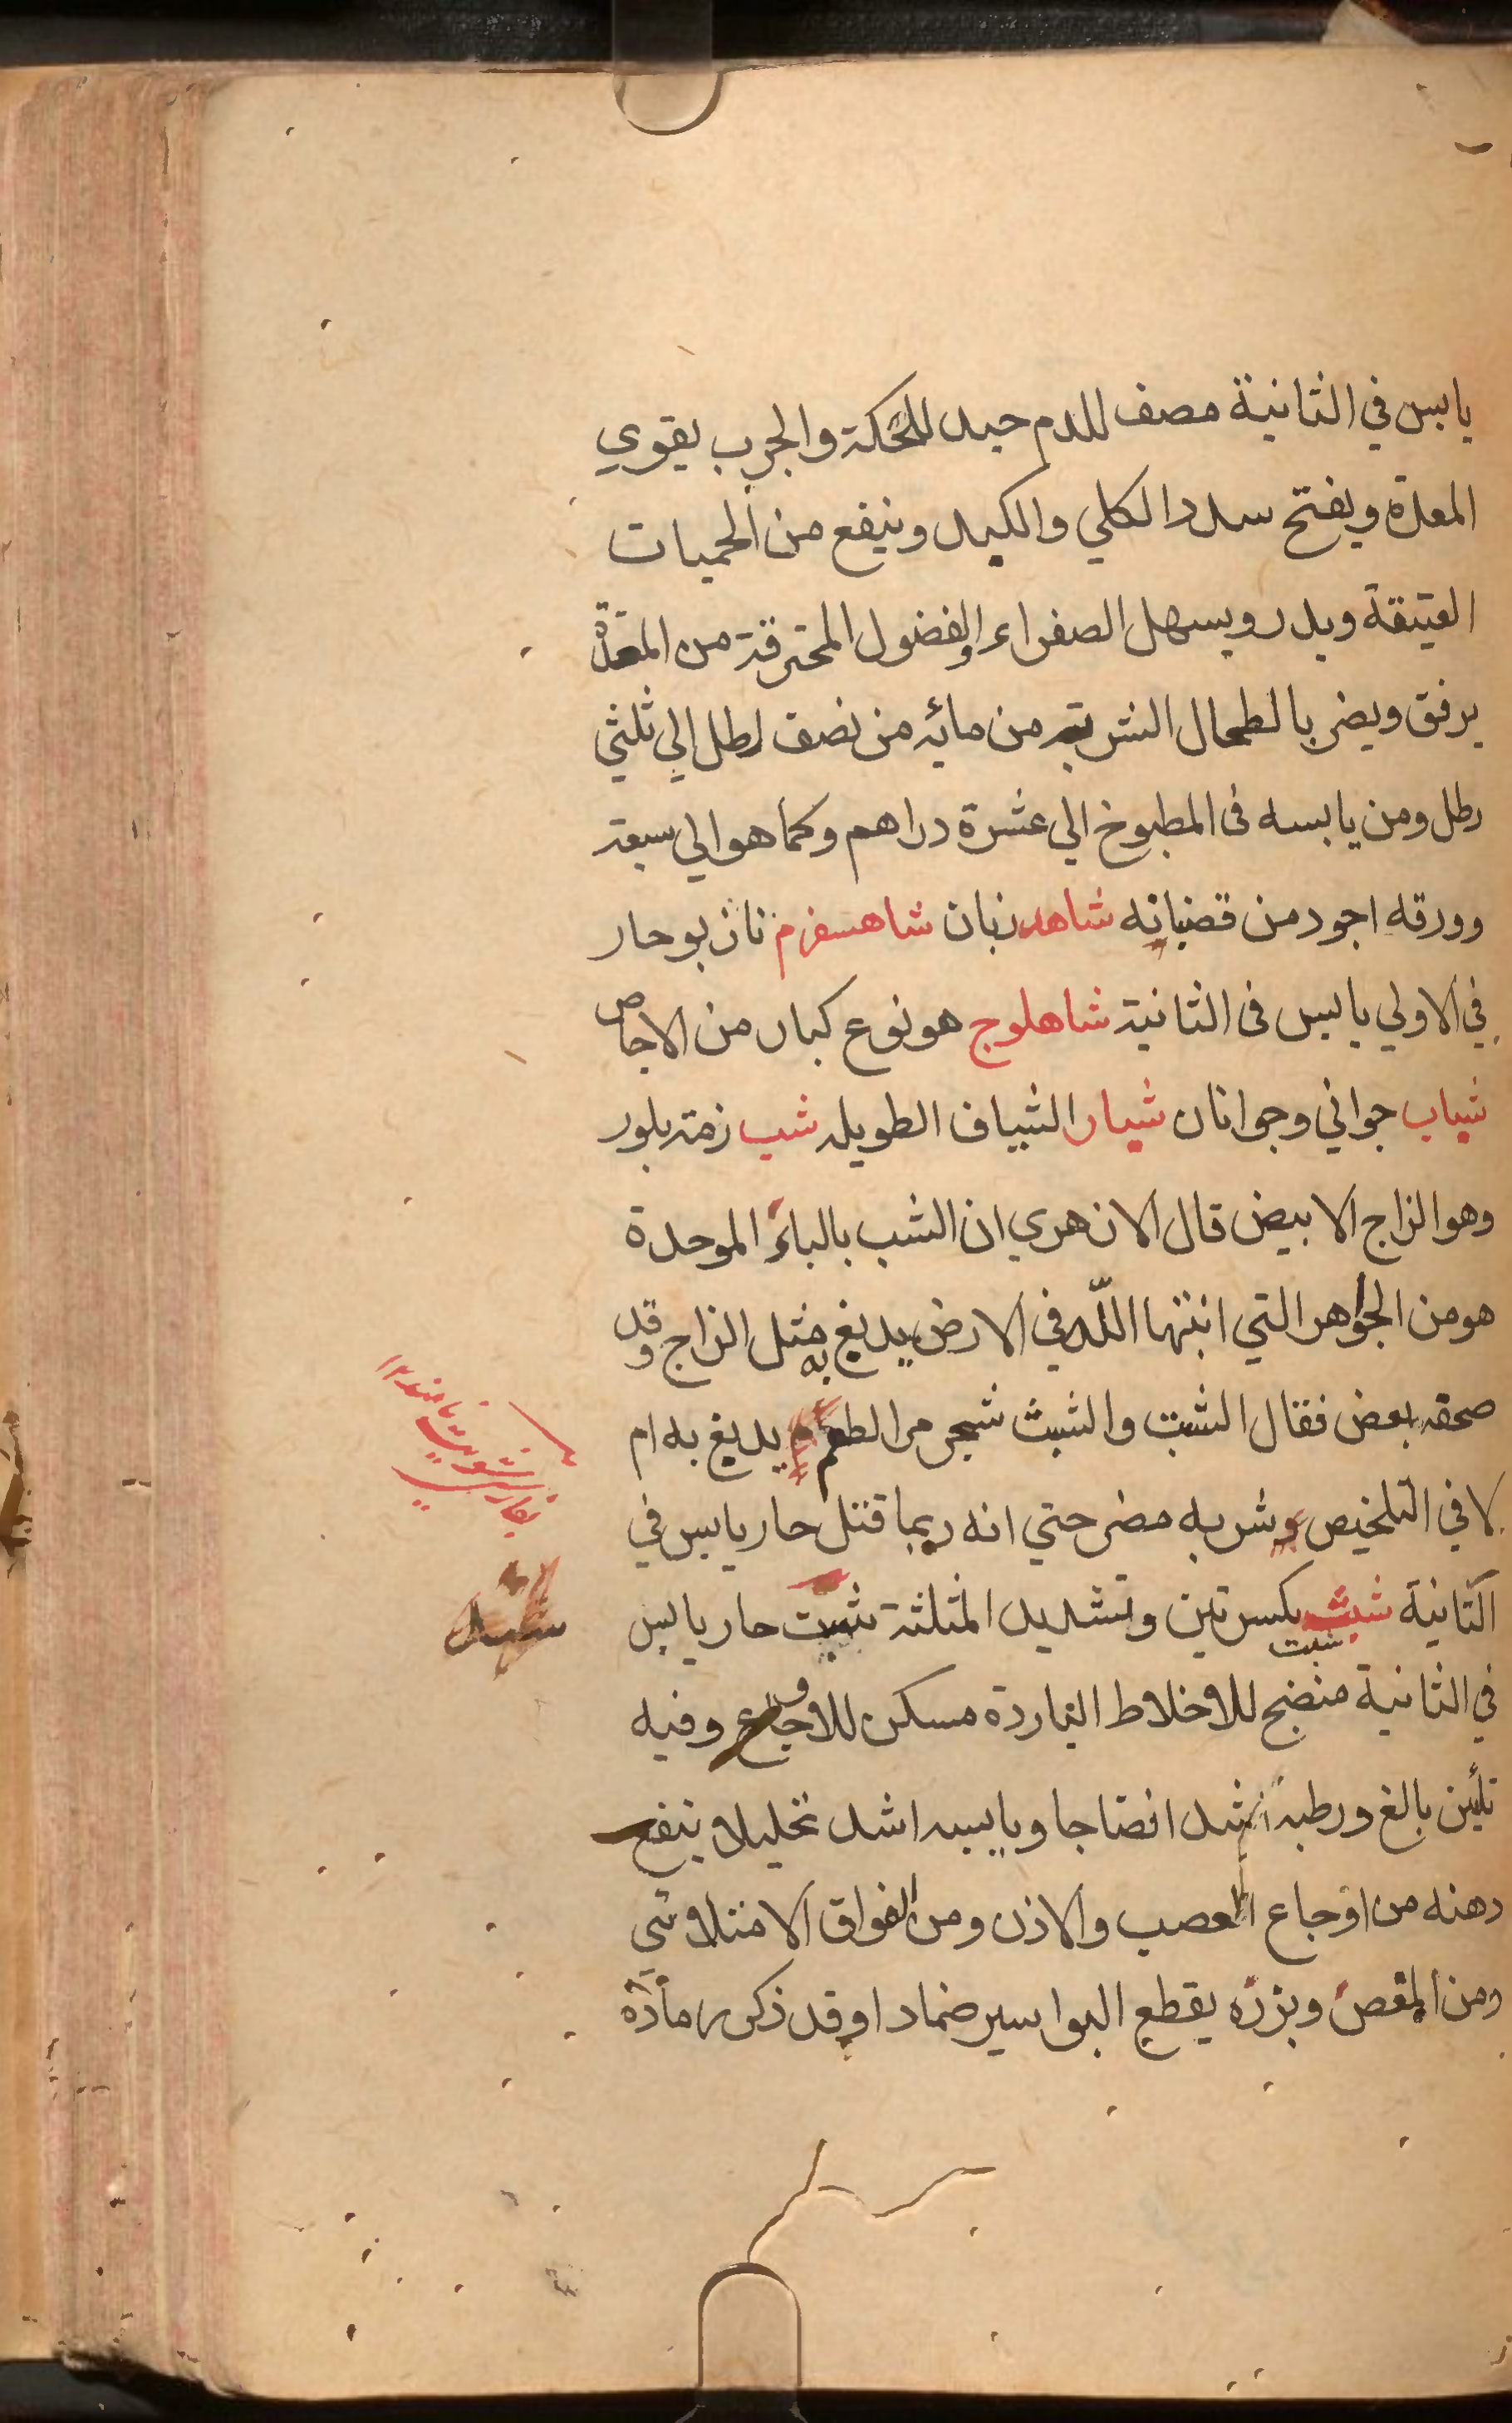 يابس في الثانية مصف للدم جيد للحكة والجرب يقوي
المعدة ويفتح سدد الكلي والكبد وينفع من الحميات
العتيقة ويدر ويسهل الصفراء والفضول المحترقة من المعدة
برفق ويضر بالطحال الشربة من مائه من نصف رطل الي ثلثي
رطل ومن يابسه في المطبوخ الي عشرة دراهم وكما هو الي سبعة
وورقه اجود من قضبانه شاهدزبان شاهسفرم نازبو حار
في الاولي يابس في الثانية شاهلوج هو نوع كبار من الاجاص
شباب جواني وجوانان شيار الشياف الطويله شب زمة بلور
وهو الزاج الابيض قال الازهري ان الشب بالباء الموحدة
هو من الجواهر التي انبتها الله في الارض يدبغ به مثل الزاج وقد
صحفه بعض فقال الشت والشث شجر مر الطعم يدبغ به ام
لا في التلخيص وشربه مضر حتي انه ربما قتل حار يابس في
الثانية شبث بكسرتين وتشديد المثلثة شبت حار يابس
شبت
في الثانية منضج للاخلاط الباردة مسكن للاوجاع وفيه
تلئين بالغ ورطبه اشد انضاجا ويابسه اشد تحليلا ينفع
دهنه من اوجاع العصب والاذن ومن الفواق الامتلاوئي
ومن المغص وبزره يقطع البواسير ضمادا وقد ذكر رمادة